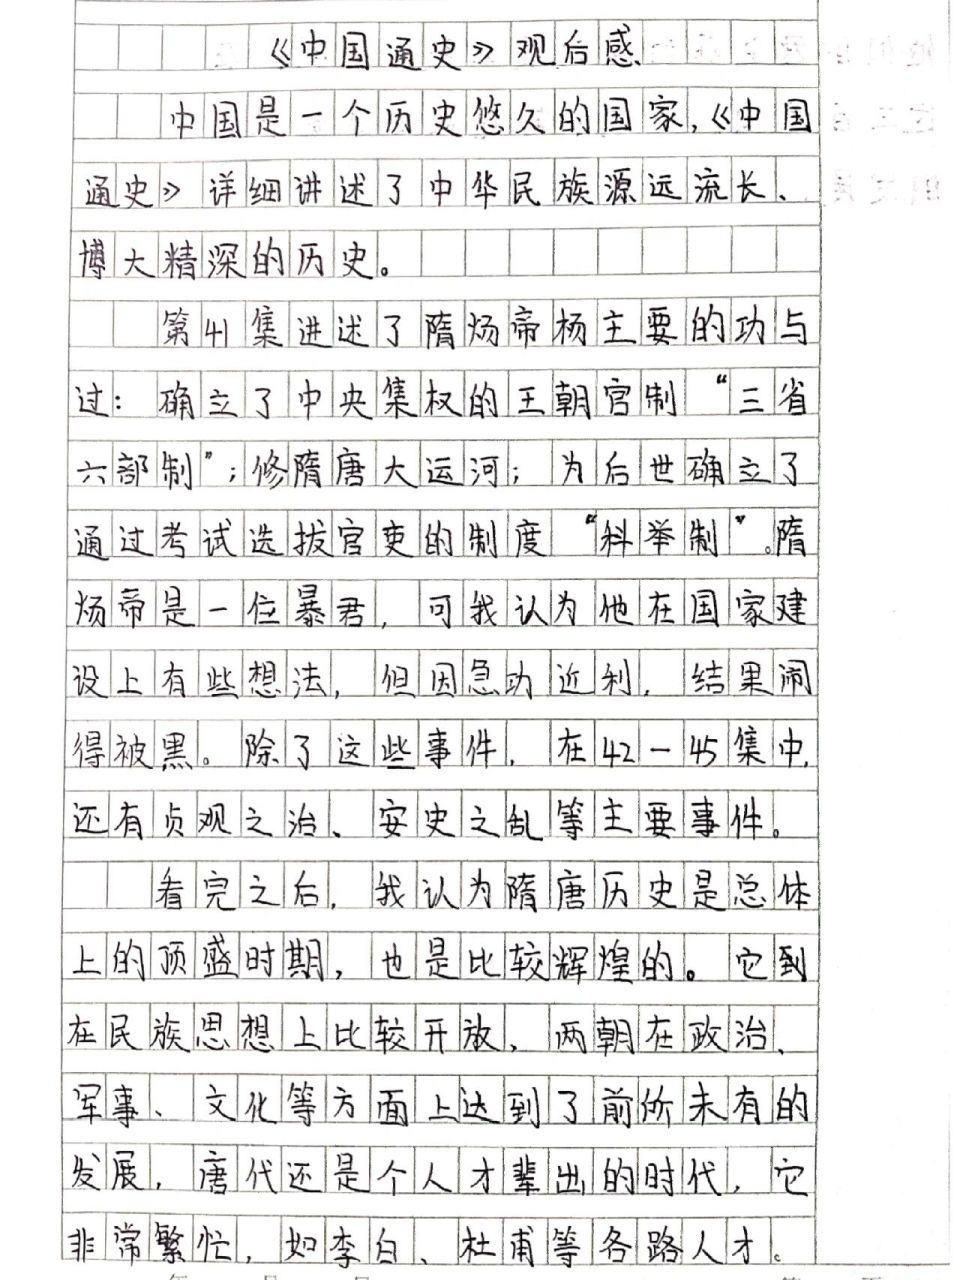 《中国通史》观后感
中国是一个历史悠久的国家,《中国
通史》详细讲述了中华民族源远流长、
博大精深的历史。
第41集进述了隋炀帝杨主要的功与
过:确立了中央集权的王朝官制“三省
六部制”;修隋唐大运河;为后世确立了
通过考试选拔官吏的制度“科举制”。隋
炀帝是一位暴君,可我认为他在国家建
设上有些想法,但因急功近利,结果闹
得被黑。除了这些事件,在42一45集中,
还有贞观之治、安史之乱等主要事件。
看完之后,我认为隋唐历史是总体
上的顶盛时期,也是比较辉煌的。它到
在民族思想上比较开放,两朝在政治、
军事、文化等方面上达到了前所未有的
发展,唐代还是个人才辈出的时代,它
非常繁忙,如李白、杜甫等各路人才。